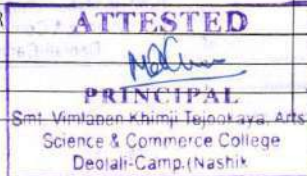 ATTESTED
PRINCIPAL
Smt. Vimlaben Khimji Tejookaya, Arts
Science & Commerce College
Deolali-Camp.(Nashik